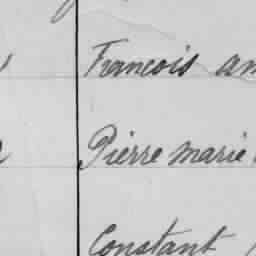 Francois
Pierre marie
Constant